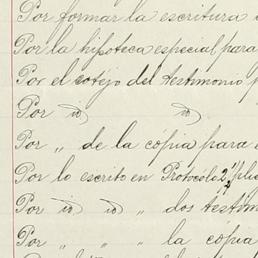 Por formar la escritura
Por la hipoteca especial para
Por el cotejo del testimonio p
Por id id
Por „ de la cópia para
Por lo escrito en Protócolo 2
Por id id „ dos testim
Por „ „ „ la copia